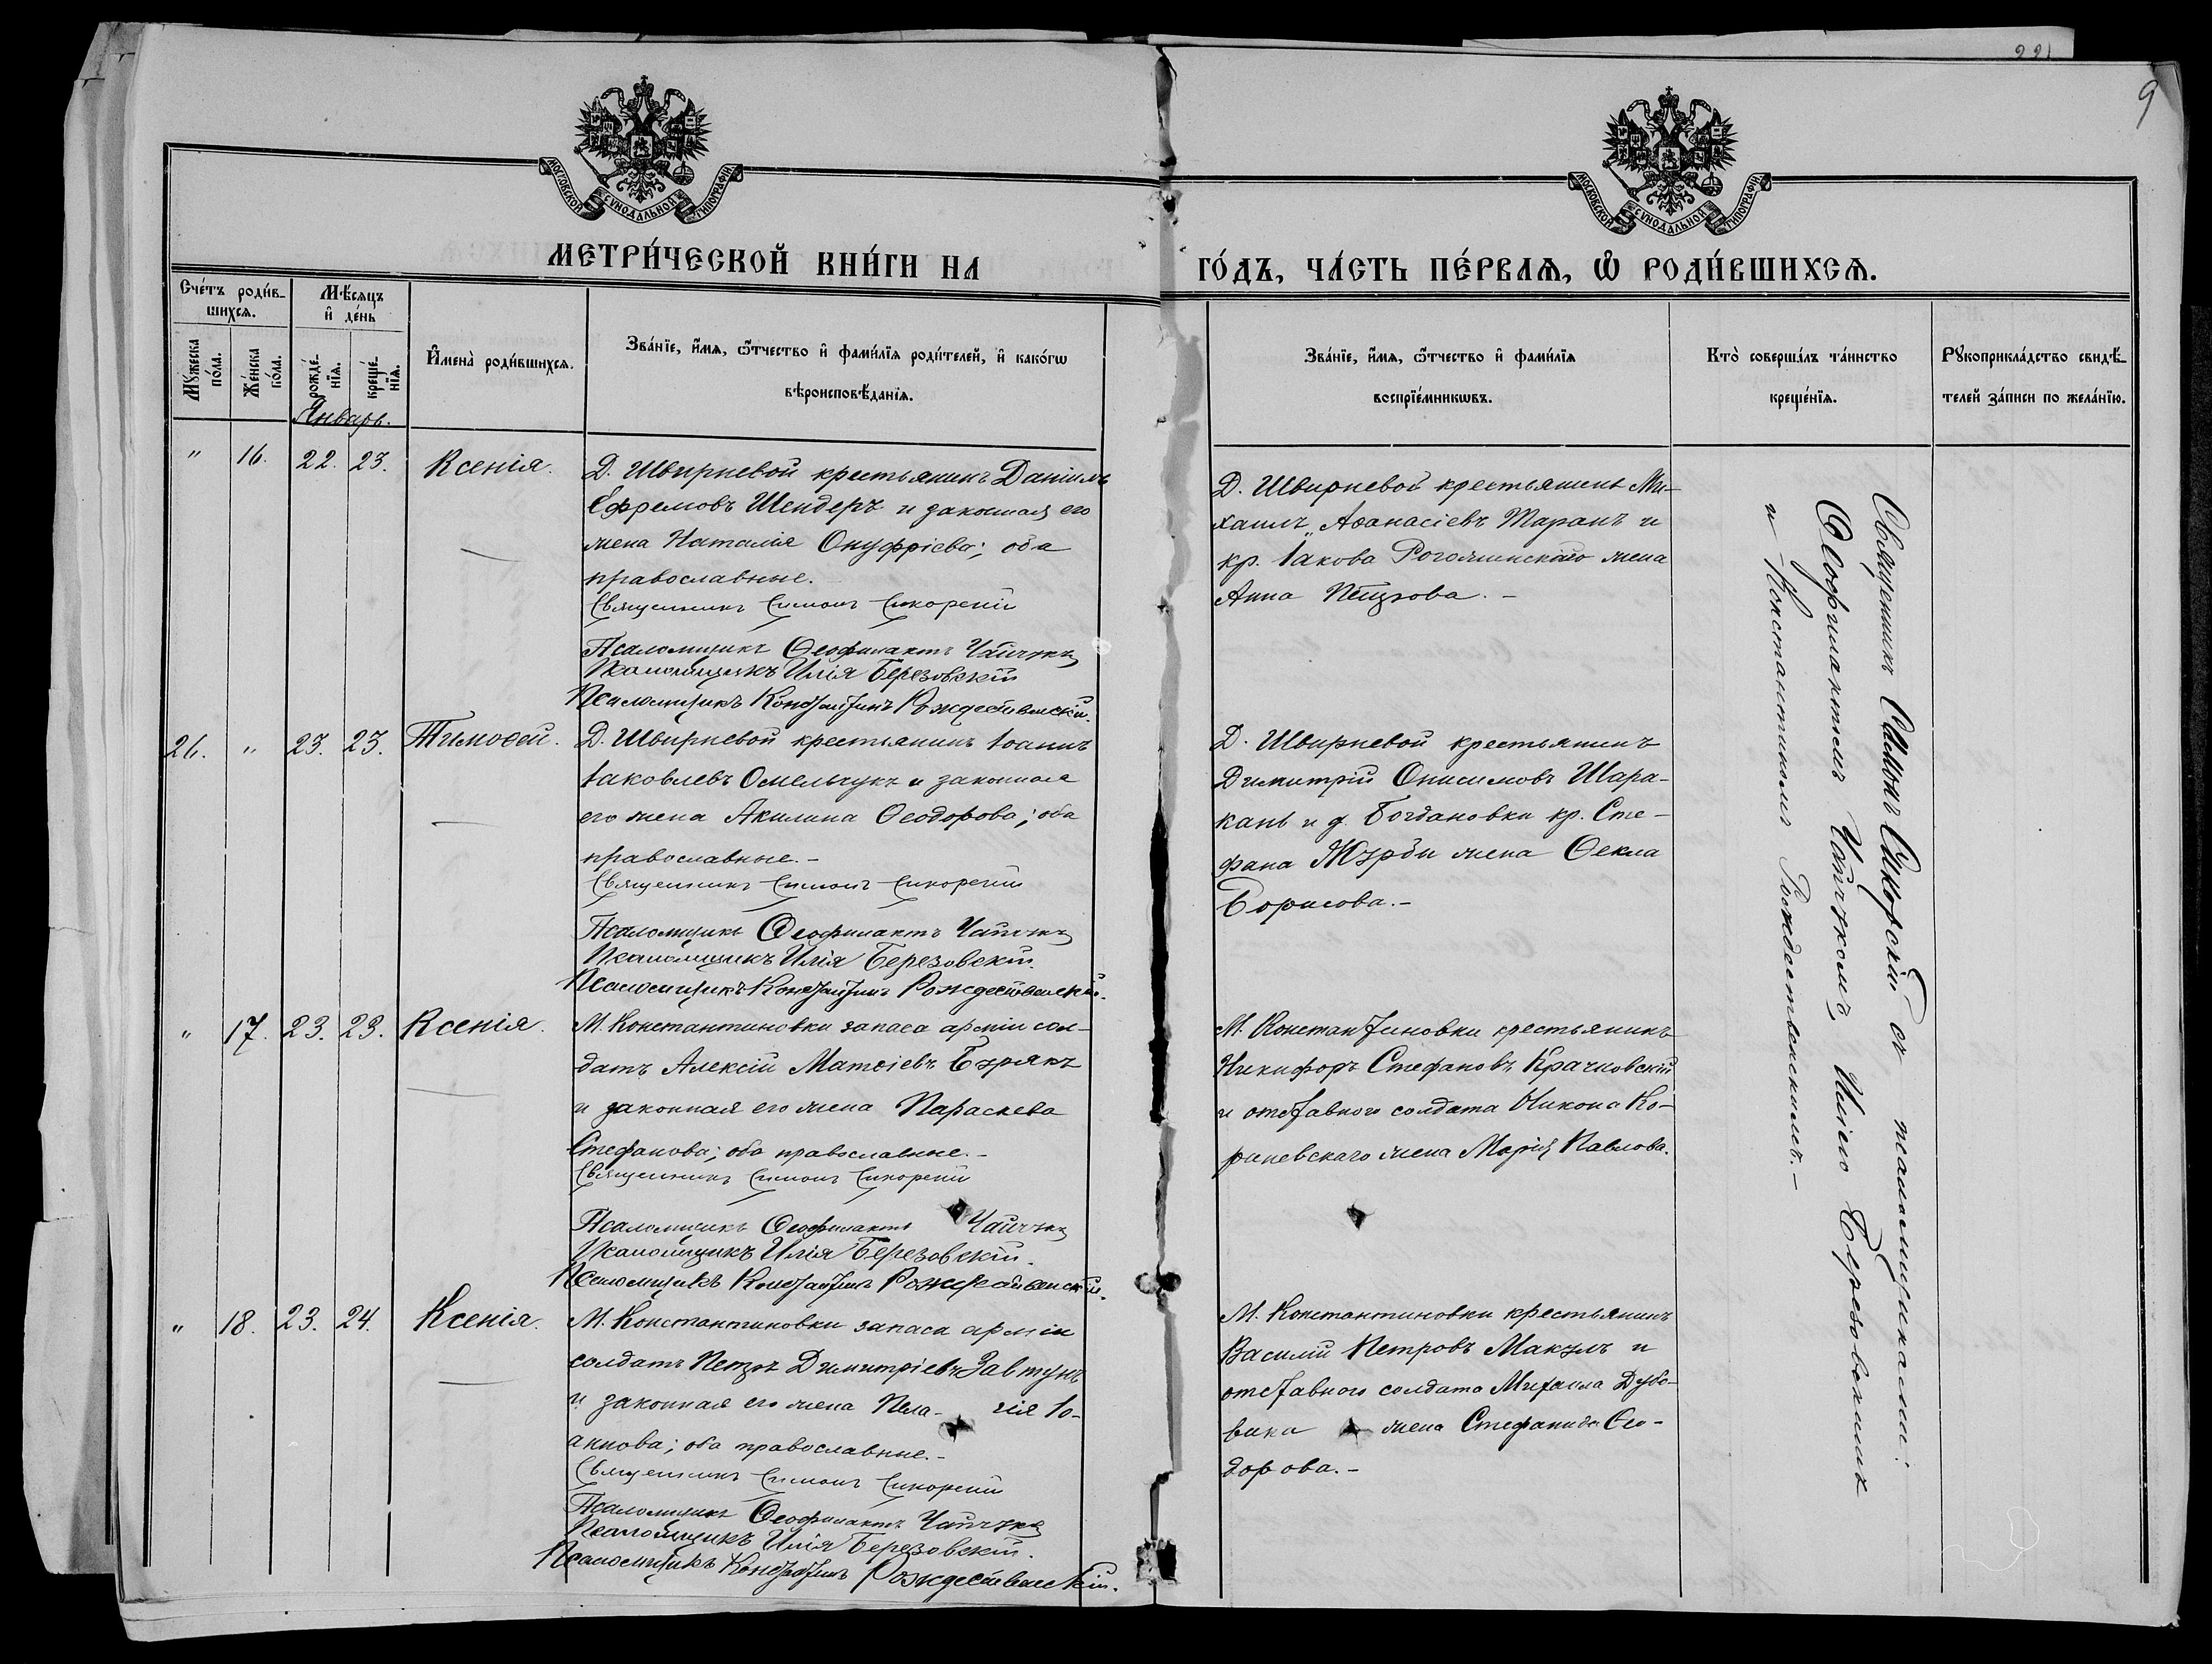 221
9
МОСКОВСКОЙ СУНОДАЛЬНОЙ ТИПОГРАФІИ
МОСКОВСКОЙ СУНОДАЛЬНОЙ ТИПОГРАФІИ
МЕТРИ́ЧЕСКОЙ КНИ́ГИ НА
ГО́ДЪ, ЧА́СТЬ ПЕ́РВАѦ, Ѡ҆ РОДИ́ВШИХСѦ.
Сче́тъ роди́в-
шихсѧ.
Мꙋ́жеска
по́ла.
Же́нска
по́ла.
Мѣ́сѧцъ
и҆ де́нь
рожде́-
нїѧ.
креще́-
нїѧ.
И҆мена̀ роди́вшихсѧ.
Зва́нїе, и҆́мѧ, ѻ҆́тчество и҆ фами́лїѧ роди́телей, и҆ како́гѡ
вѣроисповѣ́данїѧ.
Зва́нїе, и҆́мѧ, ѻ҆́тчество и҆ фами́лїѧ
воспрїе́мникѡвъ.
Кто̀ соверша́лъ та́инство
креще́нїѧ.
Рꙋкоприкла́дство свидѣ́-
телей за́писи по жела́нїю.
Январь.
" 16. 22. 23. Ксенія.
Д. Швирневой крестьянинъ Даніилъ
Ефремовъ Шендеръ и законная его
жена Наталія Онуфріева; оба
православные.
Священникъ Симонъ Сикорскій
Псаломщикъ Ѳеофилактъ Чайчукъ
Псаломщикъ Илія Березовскій
Псаломщикъ Константинъ Рождественскій.
Д. Швирневой крестьянинъ Ми-
хаилъ Аѳанасіевъ Таранъ и
кр. Іакова Рогожинскаго жена
Анна Петрова. -
26. " 23. 23. Тимоѳей.
Д. Швирневой крестьянинъ Іоаннъ
Іаковлевъ Омельчукъ и законная
его жена Акилина Ѳеодорова; оба
православные. -
Священникъ Симонъ Сикорскій
Псаломщикъ Ѳеофилактъ Чайчукъ
Псаломщикъ Илія Березовскій.
Псаломщикъ Константинъ Рождественскій.
Д. Швирневой крестьянинъ
Димитрій Онисимовъ Шара-
кань и д. Богдановки кр. Сте-
фана Журбы жена Ѳекла
Борисова. -
" 17. 23. 23. Ксенія.
М. Константиновки запаса арміи сол-
датъ Алексій Матѳіевъ Бурякъ
и законная его жена Параскева
Стефанова; оба православные. -
Священникъ Симонъ Сикорскій
Псаломщикъ Ѳеофилактъ Чайчукъ
Псаломщикъ Илія Березовскій.
Псаломщикъ Константинъ Рождественскій.
М. Константиновки крестьянинъ
Никифоръ Стефановъ Крачковскій
и отставного солдата Никона Ко-
риневскаго жена Марія Павлова.
" 18. 23. 24. Ксенія.
М. Константиновки запаса арміи
солдатъ Петръ Димитріевъ Завтунъ
и законная его жена Пела- гія Іо-
аннова; оба православные. -
Священникъ Симонъ Сикорскій
Псаломщикъ Ѳеофилактъ Чайчукъ
Псаломщикъ Илія Березовскій.
Псаломщикъ Константинъ Рождественскій.
М. Константиновки крестьянинъ
Василій Петровъ Макулъ и
отставного солдата Михаила Дубо-
вика жена Стефанида Ѳео-
дорова. -
Священникъ Симонъ Сикорскій съ псаломщиками:
Ѳеофилактомъ Чайчукомъ, Иліею Березовскимъ
и Константиномъ Рождественскимъ. -